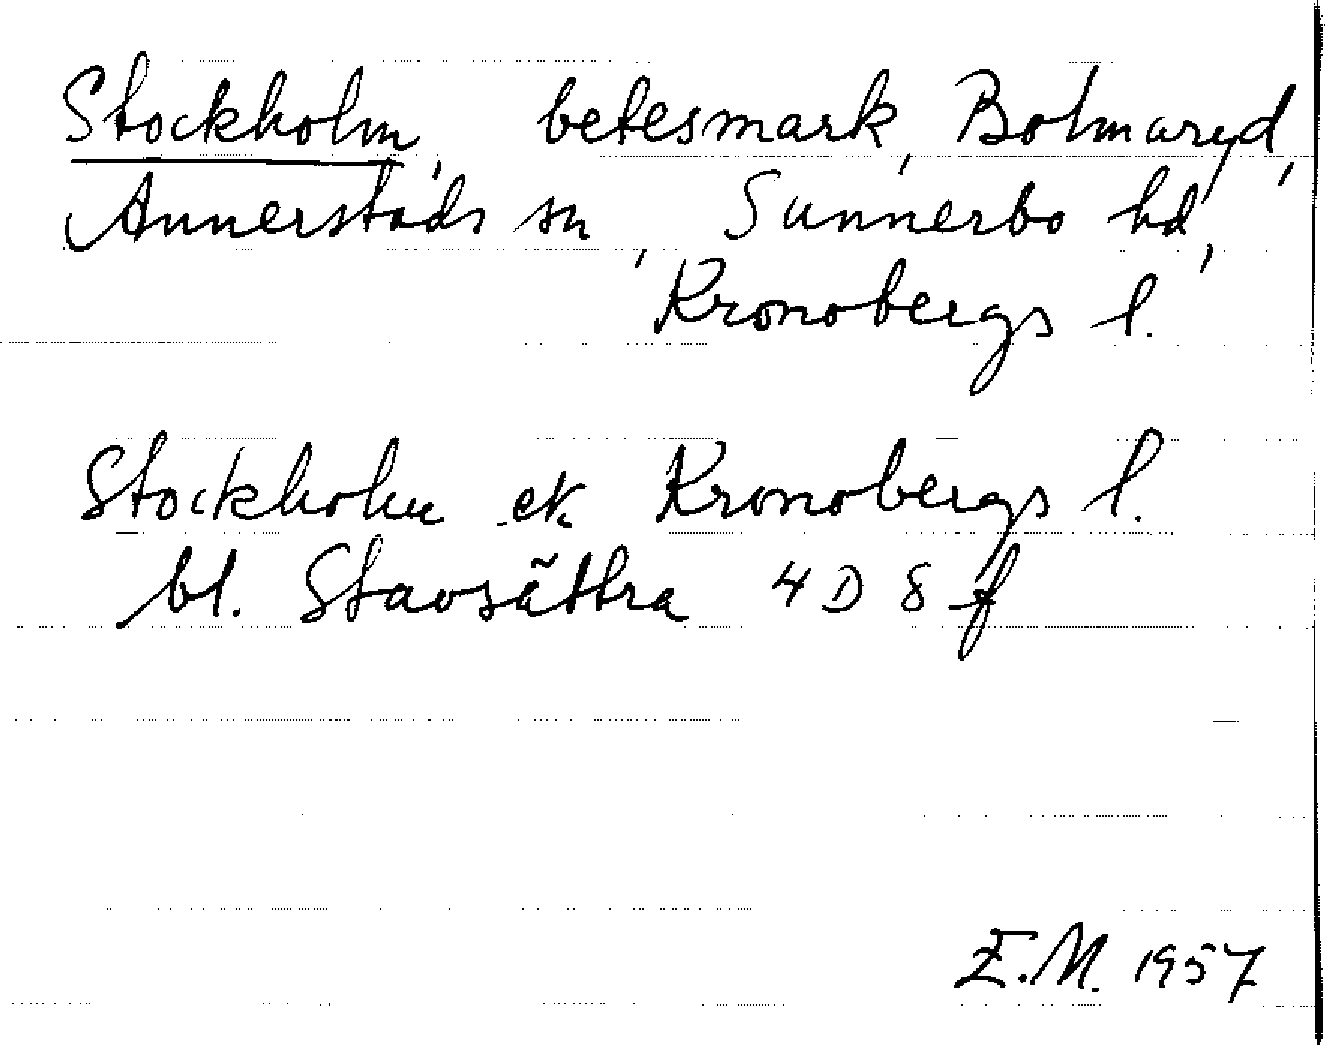 Stockholm, betesmark, Bolmaryd,
Annerstads sn, Sunnerbo hd,
Kronobergs l.
Stockholm ek Kronobergs l.
bl. Stavsättra 4 D 8 f
E.M. 1957